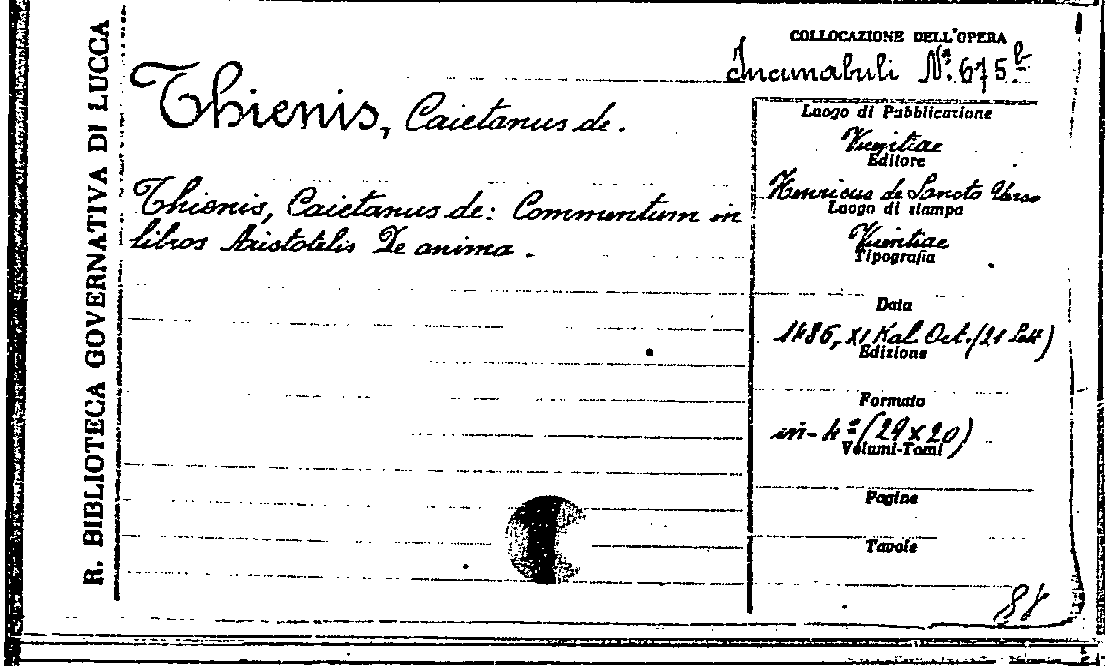 R. BIBLIOTECA GOVERNATIVA DI LUCCA
COLLOCAZIONE DELL'OPERA
Incunabuli Nº. 675 b
Thienis, Caietanus de.
Thienis, Caietanus de: Commentum in
libros Aristotelis De anima.
Luogo di Pubblicazione
Venitiae
Editore
Henricus de Sancto Urso
Luogo di stampa
Venitiae
Tipografia
Data
1486, XI Kal. Oct. (21 Sett)
Edizione
Formato
in-4º (29 x 20)
Volumi-Tomi
Pagine
Tavole